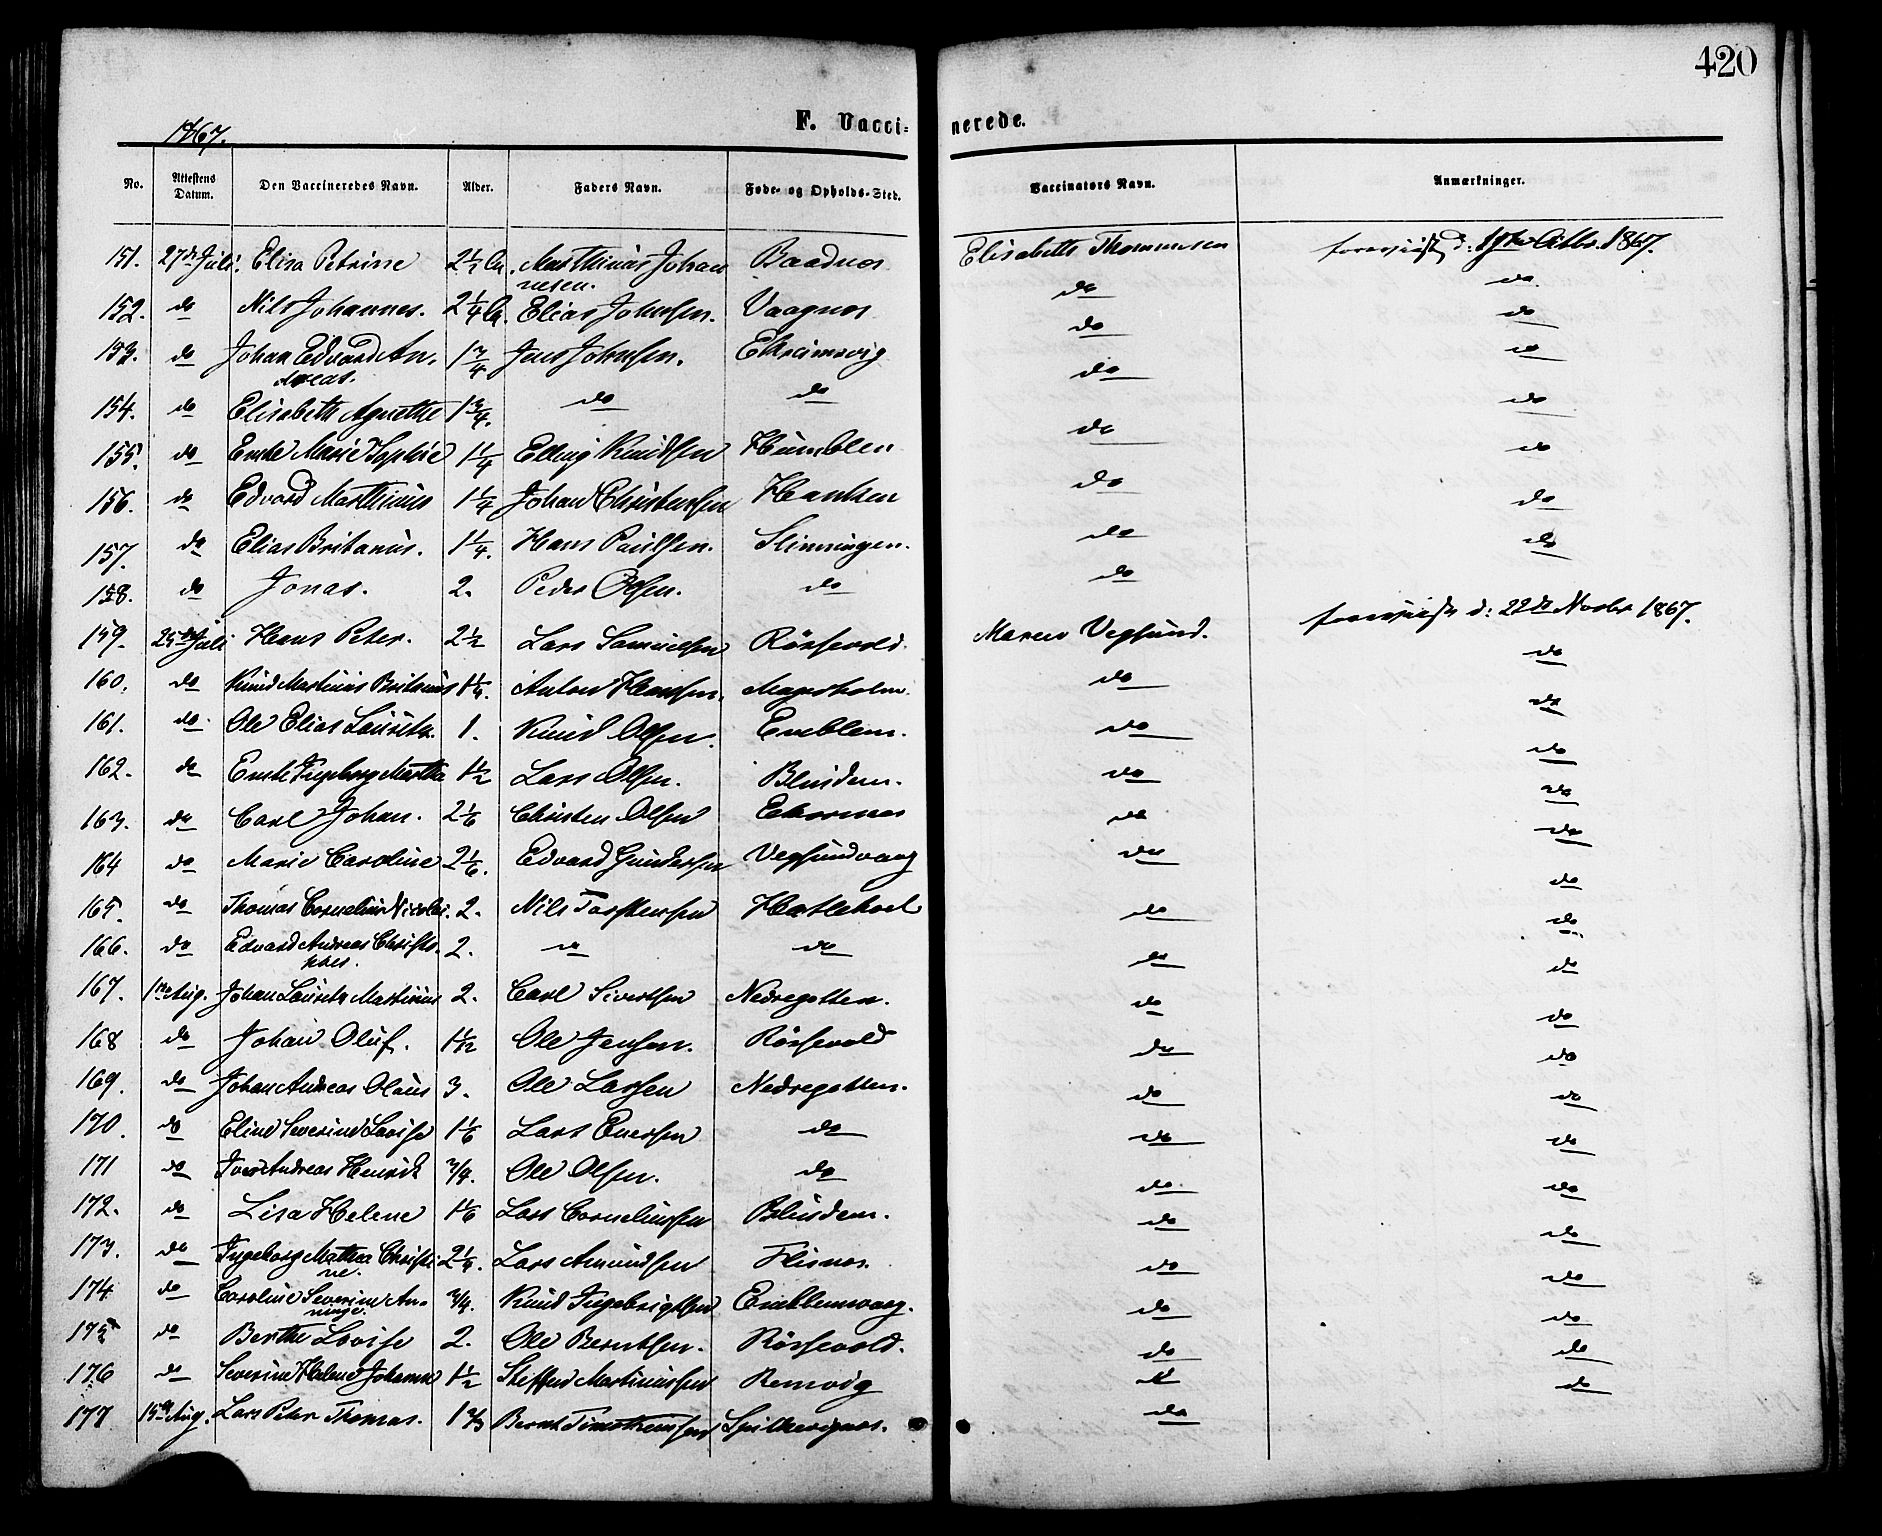 420
1867.
F. Vacci- nerede.
No. Attestens Datum. Den Vaccineredes Navn. Alder. Faders Navn. Føde- og Opholds-Sted. Vaccinators Navn. Anmærkninger.
151. 27de Juli. Elisa Petrine 2 1/2 Matthias Johan Baadnes Elisabeth Thommesen d: 1867.
nesen.
152. do Nils Johannes. 2 1/4 Elias Johnsen. Vaagnes do do
153. do Johan Edvard An- 1 3/4 Jens Johnsen. do do
dreas.
154. do Elisabeth Agnethe 1 3/4. do do do do
155. do Marie Sophie 1 1/4 Elling Knudsen Humblen do do
156. do Edvard Martinus 1 1/4 Johan Christensen do do
157. do Elias Britanus. 1 1/4. Hans Paulsen. Slinningen. do do
158. do Jonas. 2. Peder Olsen. do do do
159. Juli Hans Peter. 2 1/2 Lars Samuelsen Rörsevold. Maren Vegsund. d: 22de Novbr 1867.
160. do Knud Martinus Britanus 1 1/4. Anton Hansen. Magerholm. do do
161. do. Ole Elias Lauritz. 1. Knud Olsen. Emblem. do do
162. do Ingeborg Martha 1 1/2 Lars Olsen. Blindem. do do
163. do Carl Johan. 2 1/6 Christen Olsen Ekornnes do do
164 do Marie Caroline 2 1/6. Edvard Gundersen Vegsundvaag do do
165. do Thomas Cornelius Nicolai. 2. Nils Torstensen Hatlehoel do do
166. do Edvard Andreas Christo- 2. do do do do
pher.
167. 1ste Aug. Johan Lauritz Martinus 2. Carl Sivertsen Nedregotten. do do
168 do Johan Oluf. 1 1/12 Ole Jensen. Rörsevold do do
169. do Johan Andreas Olaus 3. Ole Larsen Nedregotten. do do
170. do Eline Severine Lovise 1 1/6 Lars Iversen do do do
171 do Iver Andreas Henrik 3/4. Ole Olsen. do do do
172. do Lisa Helene 1 1/6 Lars Corneliussen Blindem. do do
173. do Ingeborg Mathea Christi- 2 1/4. Lars Amundsen Flisnes. do do
ne.
174 do Caroline Severine An- 3/4. Knud Ingebrigtsen Emblemvaag. do do
175 do Berthe Lovise 2. Ole Berntsen. Rörsevold. do do
176 do Severine Helene Johanne 1 1/2 Steffen Martinussen Remvig do do
177 15de Aug. Lars Peter Thomas. 1 2/3 Bernt Timotheussen Spilkevignes. do